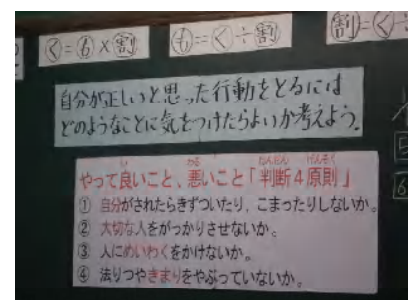 く=も×割
も=く÷割
割=く÷
自分が正しいと思った行動をとるには
どのようなことに気をつけたらよいか考えよう。
やって良いこと、悪いこと「判断4原則」
① 自分がされたらきずついたり、こまったりしないか。
② 大切な人をがっかりさせないか。
③ 人にめいわくをかけないか。
④ 法りつやきまりをやぶっていないか。